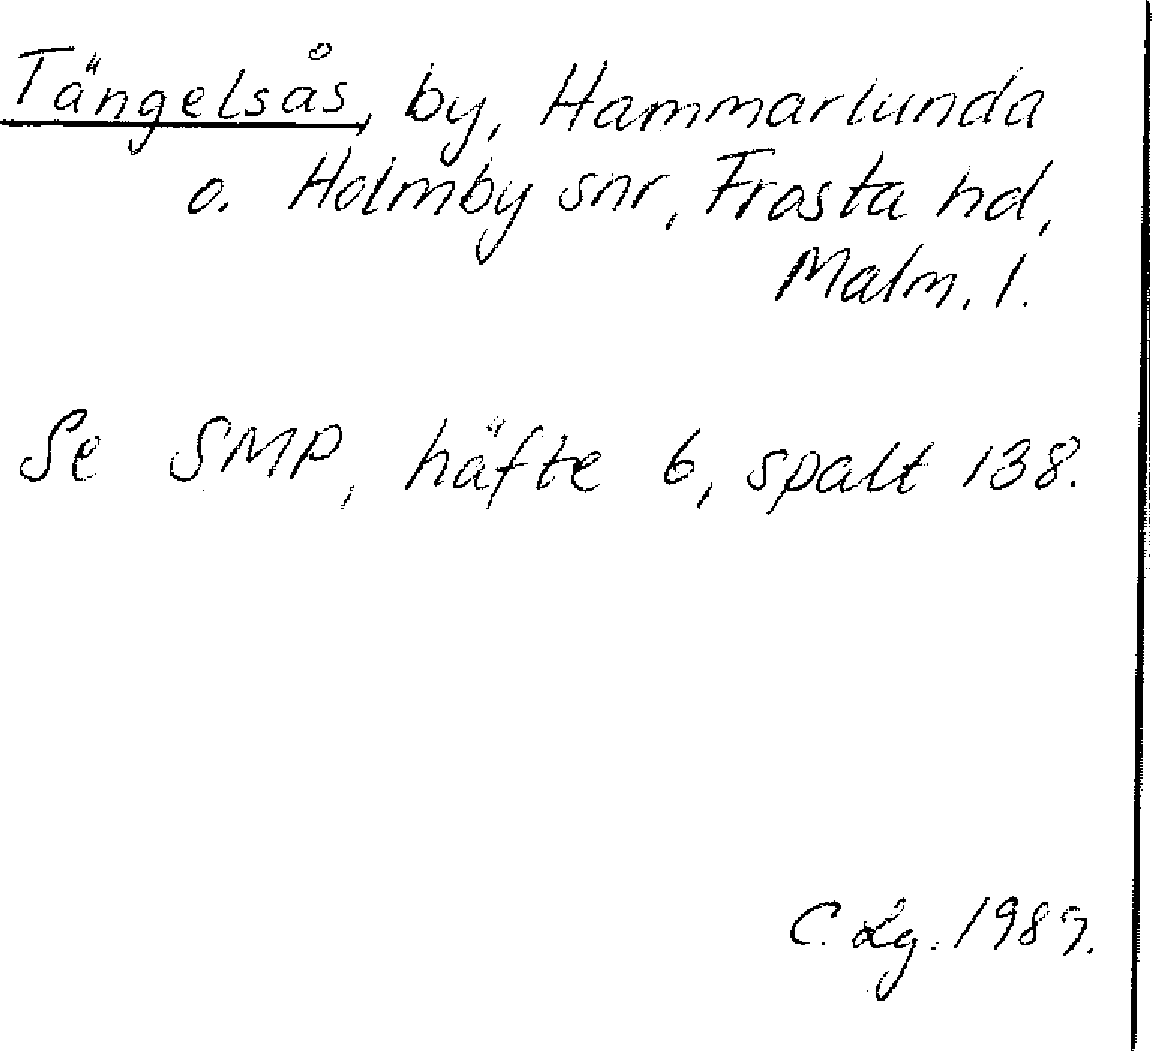 Tängelsås, by, Hammarlunda
o. Holmby snr, Frosta hd,
Malm. l.
Se SMP, häfte 6, spalt 138.
C. Lg. 1989.